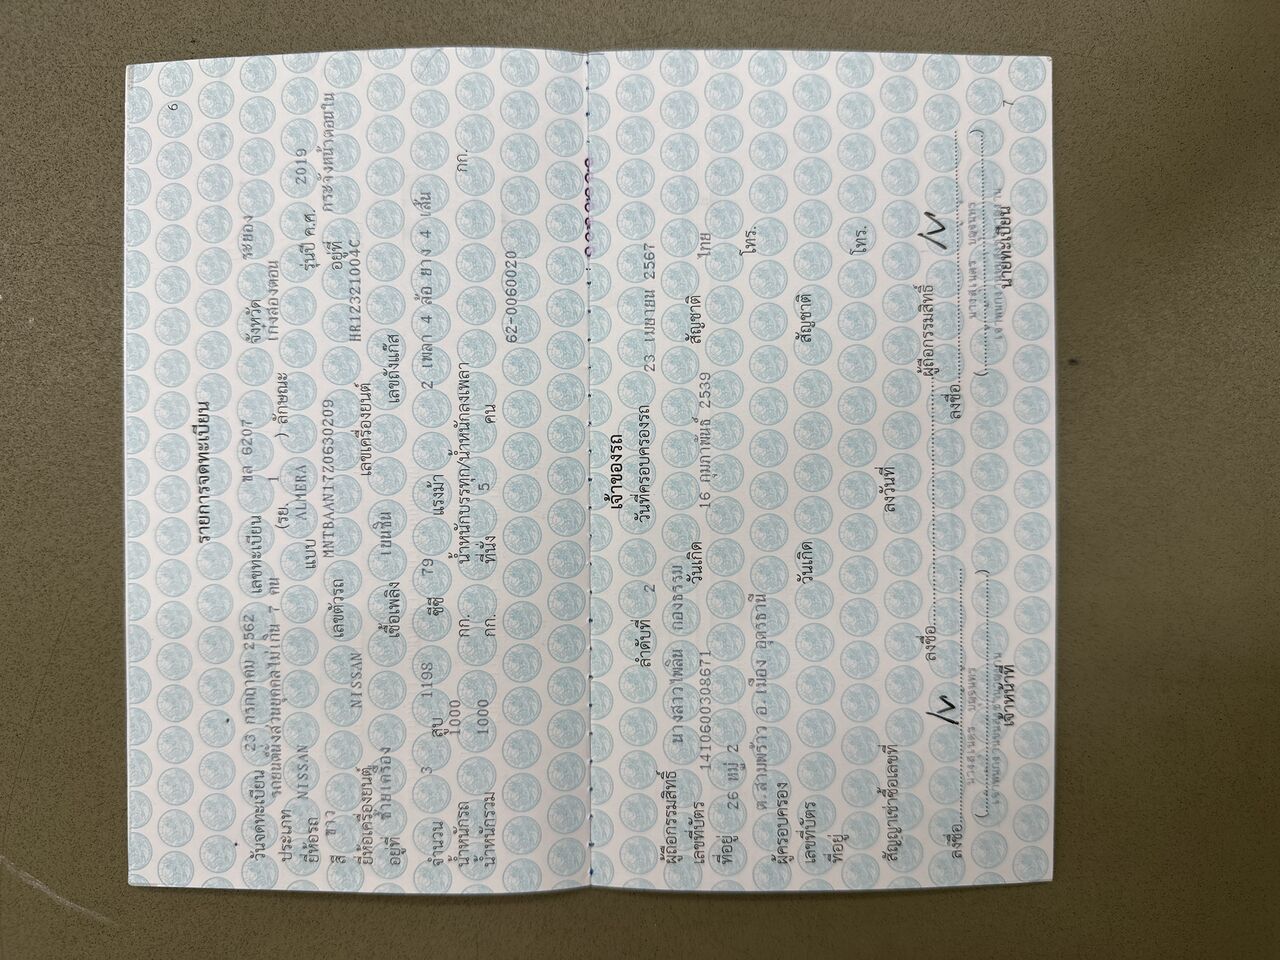 6
รายการจดทะเบียน
วันจดทะเบียน 23 กรกฎาคม 2562 เลขทะเบียน ขล 6207 จังหวัด ระยอง
ประเภท รถยนต์นั่งส่วนบุคคลไม่เกิน 7 คน (รย. 1 ) ลักษณะ เก๋งสองตอน
ยี่ห้อรถ NISSAN แบบ ALMERA รุ่นปี ค.ศ. 2019
สี ขาว เลขตัวรถ MNTBAAN17Z0630209 อยู่ที่ กระจังหน้าตอนใน
ยี่ห้อเครื่องยนต์ NISSAN เลขเครื่องยนต์ HR12321004C
อยู่ที่ ซ้ายเครื่อง เชื้อเพลิง เบนซิน เลขถังแก๊ส
จำนวน 3 สูบ 1198 ซีซี 79 แรงม้า 2 เพลา 4 ล้อ ยาง 4 เส้น
น้ำหนักรถ 1000 กก. น้ำหนักบรรทุก/น้ำหนักลงเพลา กก.
น้ำหนักรวม 1000 กก. ที่นั่ง 5 คน
62-0060020
เจ้าของรถ
ลำดับที่ 2 วันที่ครอบครองรถ 23 เมษายน 2567
ผู้ถือกรรมสิทธิ์ นางสาวไพลิน กองธรรม
เลขที่บัตร 1410600308671 วันเกิด 16 กุมภาพันธ์ 2539 สัญชาติ ไทย
ที่อยู่ 26 หมู่ 2 โทร.
ต.สามพร้าว อ.เมือง อุดรธานี
ผู้ครอบครอง
เลขที่บัตร วันเกิด สัญชาติ
ที่อยู่ โทร.
สัญญาเช่าซื้อเลขที่ ลงวันที่
ลงชื่อ ผู้ถือกรรมสิทธิ์
ลงชื่อ ลงชื่อ
( ) ( )
เจ้าหน้าที่ นายทะเบียน
7